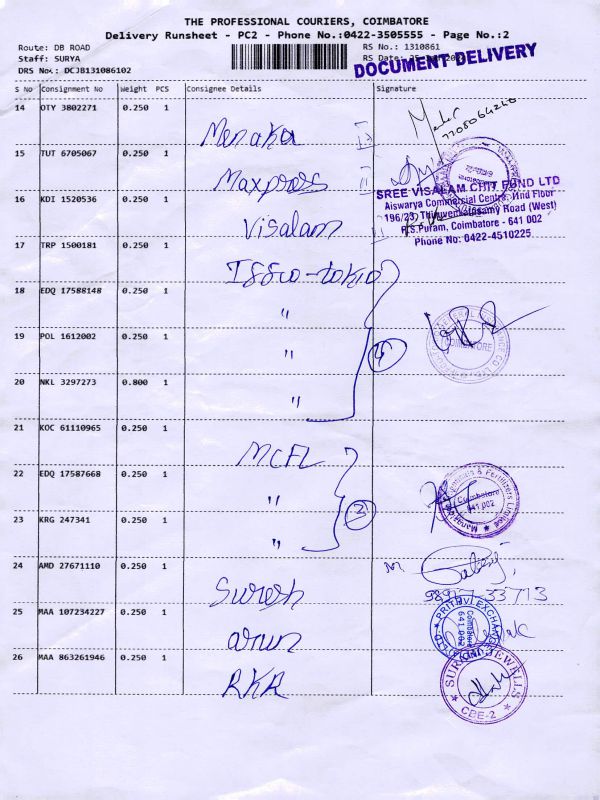 THE PROFESSIONAL COURIERS, COIMBATORE
Delivery Runsheet - PC2 - Phone No.:0422-3505555 - Page No.:2
Route: DB ROAD
RS No.: 1310861
Staff: SURYA
RS Date:
DRS No.: DCJB131086102
DOCUMENT DELIVERY
S No Consignment No Weight PCS Consignee Details Signature
14 OTY 3802271 0.250 1 Menaka
15 TUT 6705067 0.250 1 Maxpress
16 KDI 1520536 0.250 1 Visalam
SREE VISALAM CHIT FUND LTD
Aiswarya Commercial Centre, IInd Floor
196/23, Thiruvenkatasamy Road (West)
R.S.Puram, Coimbatore - 641 002
Phone No: 0422-4510225
17 TRP 1500181 0.250 1 Iffco-tokio
18 EDQ 17588148 0.250 1 "
19 POL 1612002 0.250 1 "
4
20 NKL 3297273 0.800 1 "
21 KOC 61110965 0.250 1 MCFL
22 EDQ 17587668 0.250 1 "
Coimbatore
641 002
23 KRG 247341 0.250 1 "
3
24 AMD 27671110 0.250 1 Suresh
25 MAA 107234227 0.250 1 arun
PRITHVI EXCHANGE
Coimbatore
641 002
26 MAA 863261946 0.250 1 RKR
CBE-2